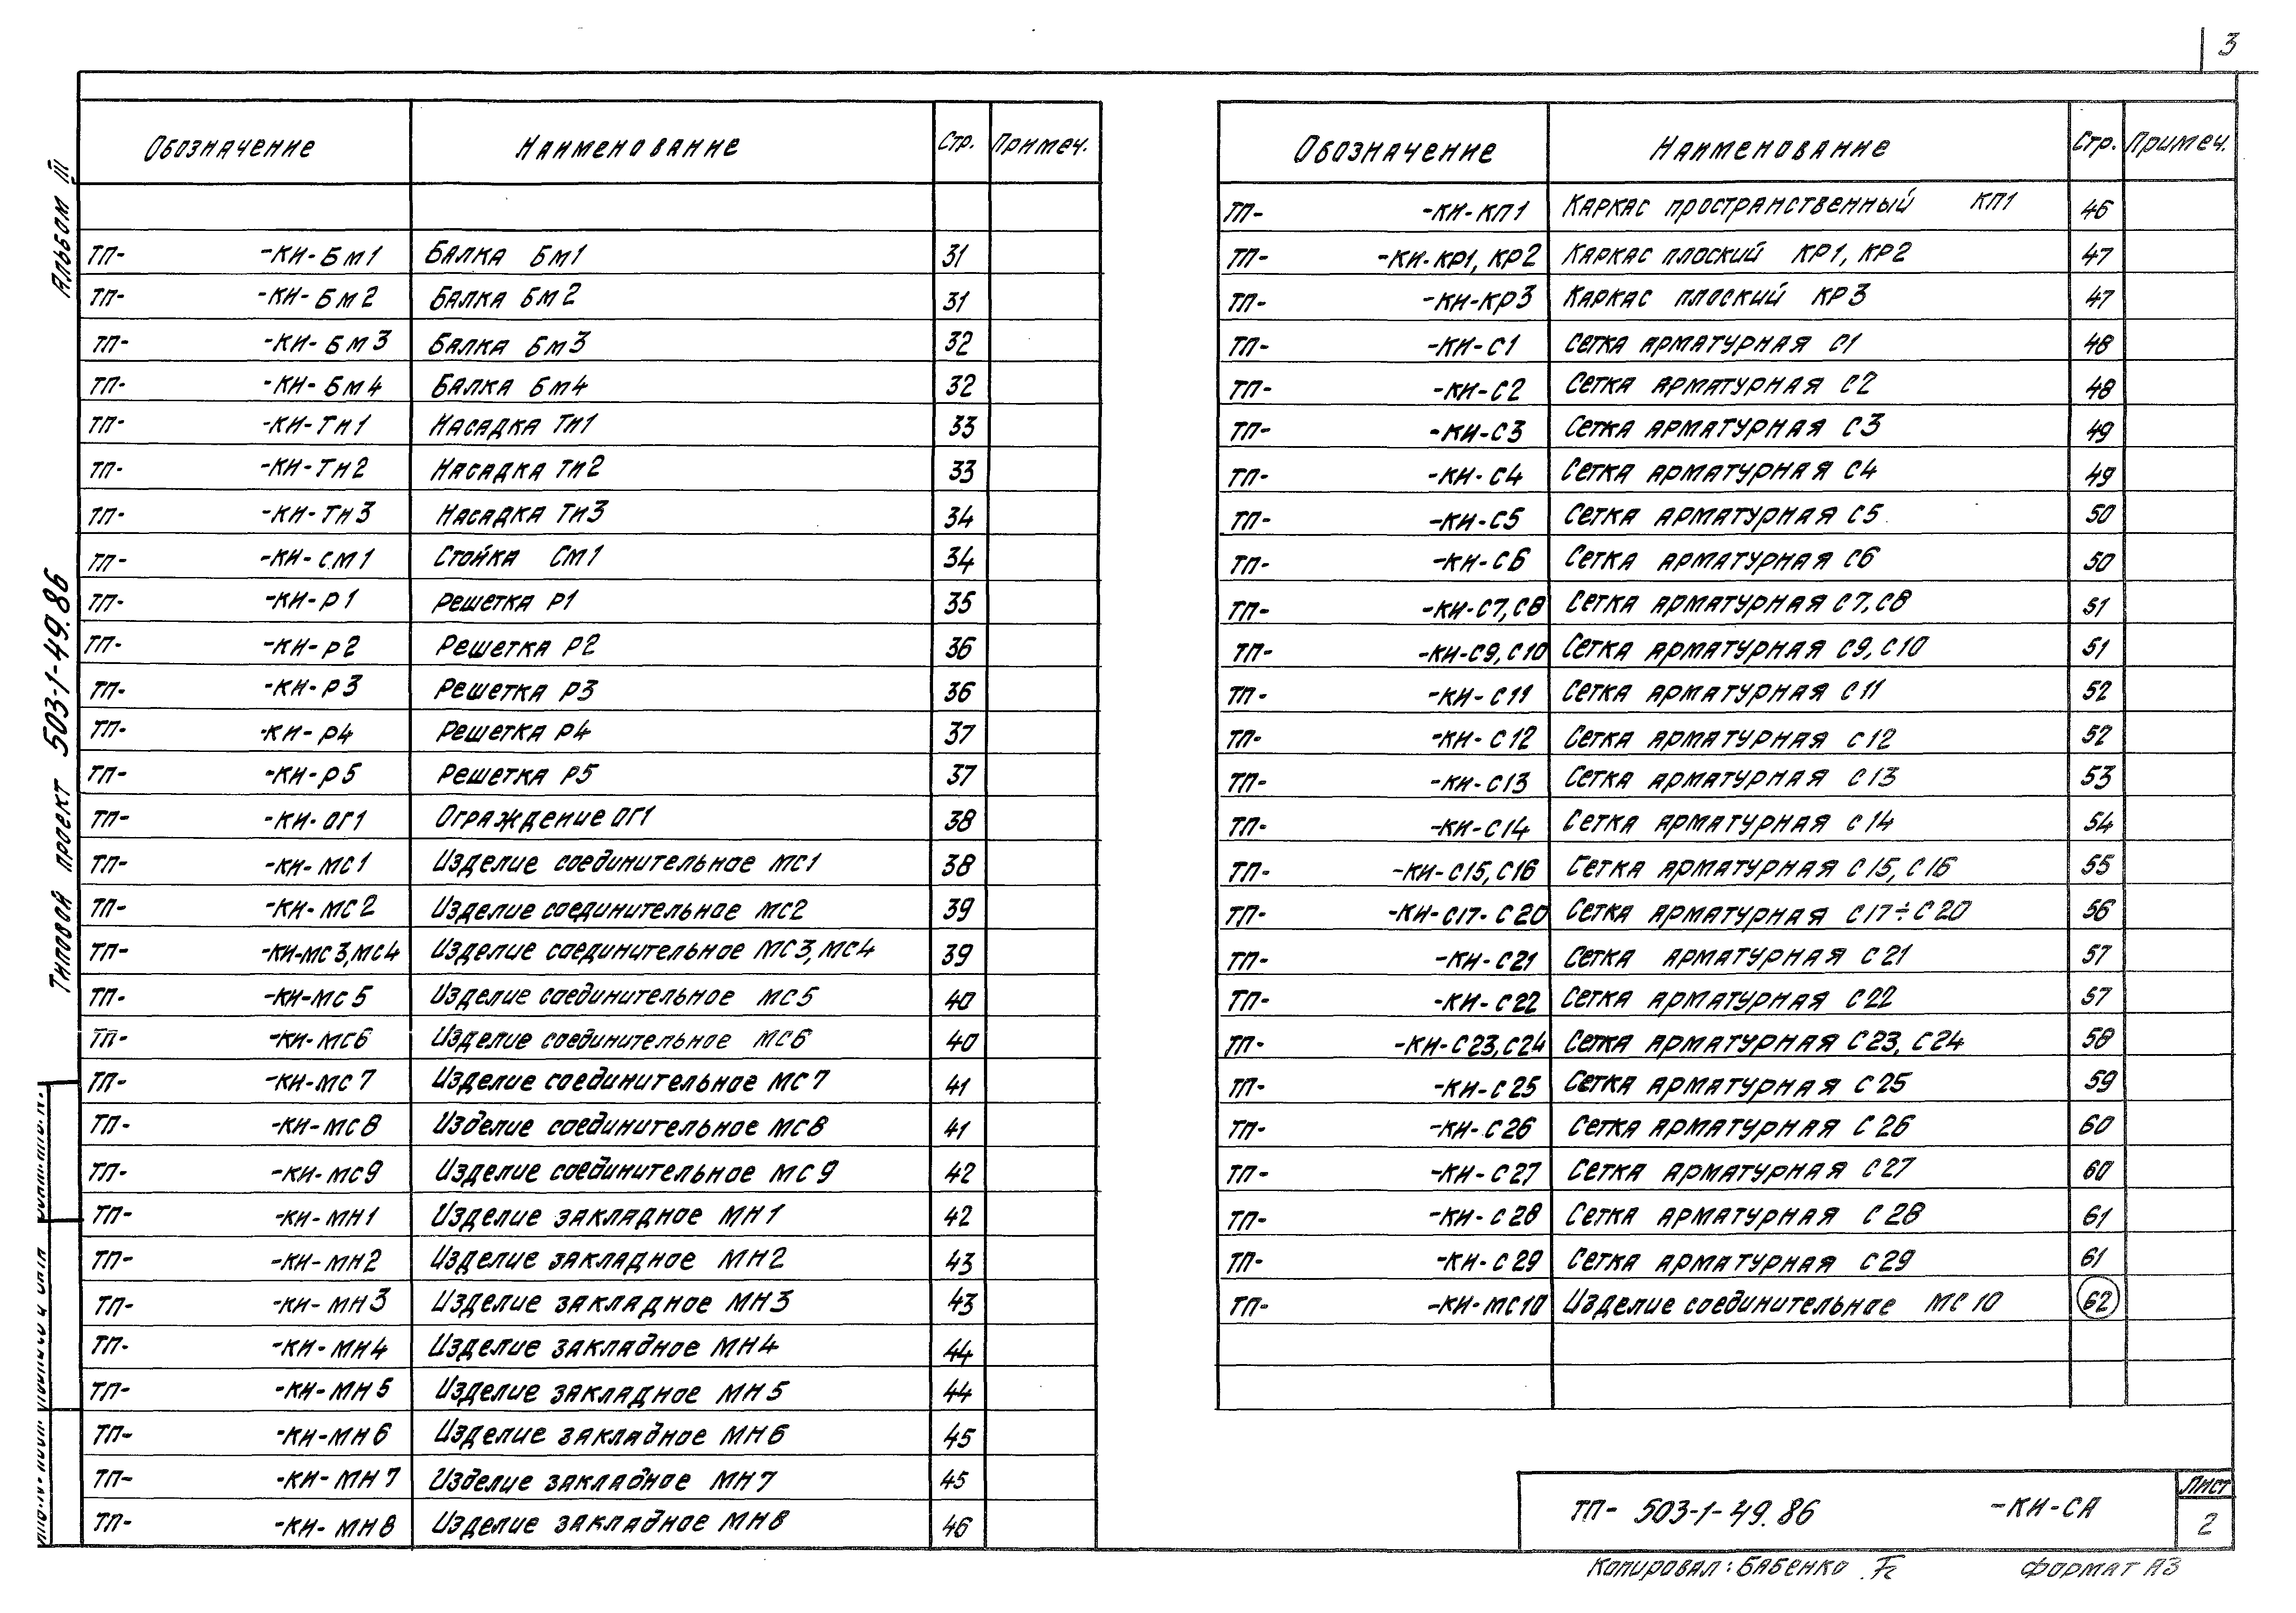 3
Альбом III
Типовой проект 503-1-49.86
Обозначение Наименование Стр. Примеч.
ТП- -КИ-Бм1 Балка Бм1 31
ТП- -КИ-Бм2 Балка Бм2 31
ТП- -КИ-Бм3 Балка Бм3 32
ТП- -КИ-Бм4 Балка Бм4 32
ТП- -КИ-Тн1 Насадка Тн1 33
ТП- -КИ-Тн2 Насадка Тн2 33
ТП- -КИ-Тн3 Насадка Тн3 34
ТП- -КИ-См1 Стойка См1 34
ТП- -КИ-Р1 Решетка Р1 35
ТП- -КИ-Р2 Решетка Р2 36
ТП- -КИ-Р3 Решетка Р3 36
ТП- -КИ-Р4 Решетка Р4 37
ТП- -КИ-Р5 Решетка Р5 37
ТП- -КИ-ОГ1 Ограждение ОГ1 38
ТП- -КИ-МС1 Изделие соединительное МС1 38
ТП- -КИ-МС2 Изделие соединительное МС2 39
ТП- -КИ-МС3,МС4 Изделие соединительное МС3, МС4 39
ТП- -КИ-МС5 Изделие соединительное МС5 40
ТП- -КИ-МС6 Изделие соединительное МС6 40
ТП- -КИ-МС7 Изделие соединительное МС7 41
ТП- -КИ-МС8 Изделие соединительное МС8 41
ТП- -КИ-МС9 Изделие соединительное МС9 42
ТП- -КИ-МН1 Изделие закладное МН1 42
ТП- -КИ-МН2 Изделие закладное МН2 43
ТП- -КИ-МН3 Изделие закладное МН3 43
ТП- -КИ-МН4 Изделие закладное МН4 44
ТП- -КИ-МН5 Изделие закладное МН5 44
ТП- -КИ-МН6 Изделие закладное МН6 45
ТП- -КИ-МН7 Изделие закладное МН7 45
ТП- -КИ-МН8 Изделие закладное МН8 46
Обозначение Наименование Стр. Примеч.
ТП- -КИ-КП1 Каркас пространственный КП1 46
ТП- -КИ-КР1, КР2 Каркас плоский КР1, КР2 47
ТП- -КИ-КР3 Каркас плоский КР3 47
ТП- -КИ-С1 Сетка арматурная С1 48
ТП- -КИ-С2 Сетка арматурная С2 48
ТП- -КИ-С3 Сетка арматурная С3 49
ТП- -КИ-С4 Сетка арматурная С4 49
ТП- -КИ-С5 Сетка арматурная С5 50
ТП- -КИ-С6 Сетка арматурная С6 50
ТП- -КИ-С7, С8 Сетка арматурная С7, С8 51
ТП- -КИ-С9, С10 Сетка арматурная С9, С10 51
ТП- -КИ-С11 Сетка арматурная С11 52
ТП- -КИ-С12 Сетка арматурная С12 52
ТП- -КИ-С13 Сетка арматурная С13 53
ТП- -КИ-С14 Сетка арматурная С14 54
ТП- -КИ-С15, С16 Сетка арматурная С15, С16 55
ТП- -КИ-С17-С20 Сетка арматурная С17÷С20 56
ТП- -КИ-С21 Сетка арматурная С21 57
ТП- -КИ-С22 Сетка арматурная С22 57
ТП- -КИ-С23, С24 Сетка арматурная С23, С24 58
ТП- -КИ-С25 Сетка арматурная С25 59
ТП- -КИ-С26 Сетка арматурная С26 60
ТП- -КИ-С27 Сетка арматурная С27 60
ТП- -КИ-С28 Сетка арматурная С28 61
ТП- -КИ-С29 Сетка арматурная С29 61
ТП- -КИ-МС10 Изделие соединительное МС10 62
ТП- 503-1-49.86 -КИ-СА
Лист
2
Копировал: Бабенко
Формат А3